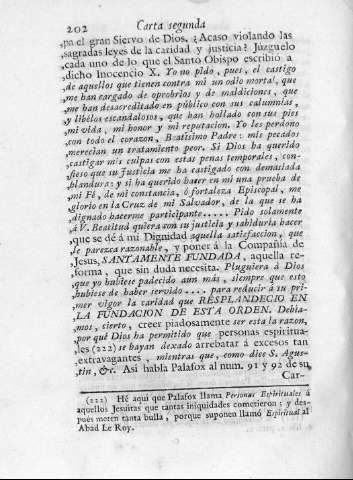 202 Carta segunda
„pa el gran Siervo de Dios. ¿Acaso violando las
„sagradas leyes de la caridad y justicia? Juzguelo
„cada uno de lo que el Santo Obispo escribió à
„dicho Inocencio X. Yo no pido, pues, el castigo
„de aquellos que tienen contra mi un odio mortal, que
„me han cargado de oprobrios y de maldiciones, que
„me han desacreditado en público con sus calumnias,
„y libélos escandalosos, que han hollado con sus pies
„mi vida, mi honor y mi reputacion. Yo les perdono
„con todo el corazon, Beatisimo Padre: mis pecados
„merecian un tratamiento peor. Si Dios ha querido
„castigar mis culpas con estas penas temporales, con-
„fieso que su Justicia me ha castigado con demasiada
„blandura: y si ha querido hacer en mi una prueba de
„mi Fé, de mi constancia, ó fortaleza Episcopal, me
„glorío en la Cruz de mi Salvador, de la que se ha
„dignado hacerme participante..... Pido solamente
„á V. Beatitud quiera con su justicia y sabiduría hacer
„que se dé á mi Dignidad aquella satisfaccion, que
„le parezca razonable, y poner á la Compañia de
„Jesus, SANTAMENTE FUNDADA, aquella re-
„forma, que sin duda necesita. Pluguiera á Dios
„que yo hubiese padecido aun más, siempre que esto
„hubiese de haber servido.... para reducir á su pri-
„mer vigor la caridad que RESPLANDECIO EN
„LA FUNDACION DE ESTA ORDEN. Debia-
„mos, cierto, creer piadosamente ser esta la razon,
„por qué Dios ha permitido que personas espiritua-
„les (222) se hayan dexado arrebatar á excesos tan
„extravagantes, mientras que, como dice S. Agus-
„tin, &c. Asi habla Palafox al num. 91 y 92 de su
Car-
(222) Hé aqui que Palafox llama Personas Espirituales á
aquellos Jesuitas que tantas iniquidades cometieron: y des-
pués meten tanta bulla, porque suponen llamó Espiritual al
Abad Le Roy.